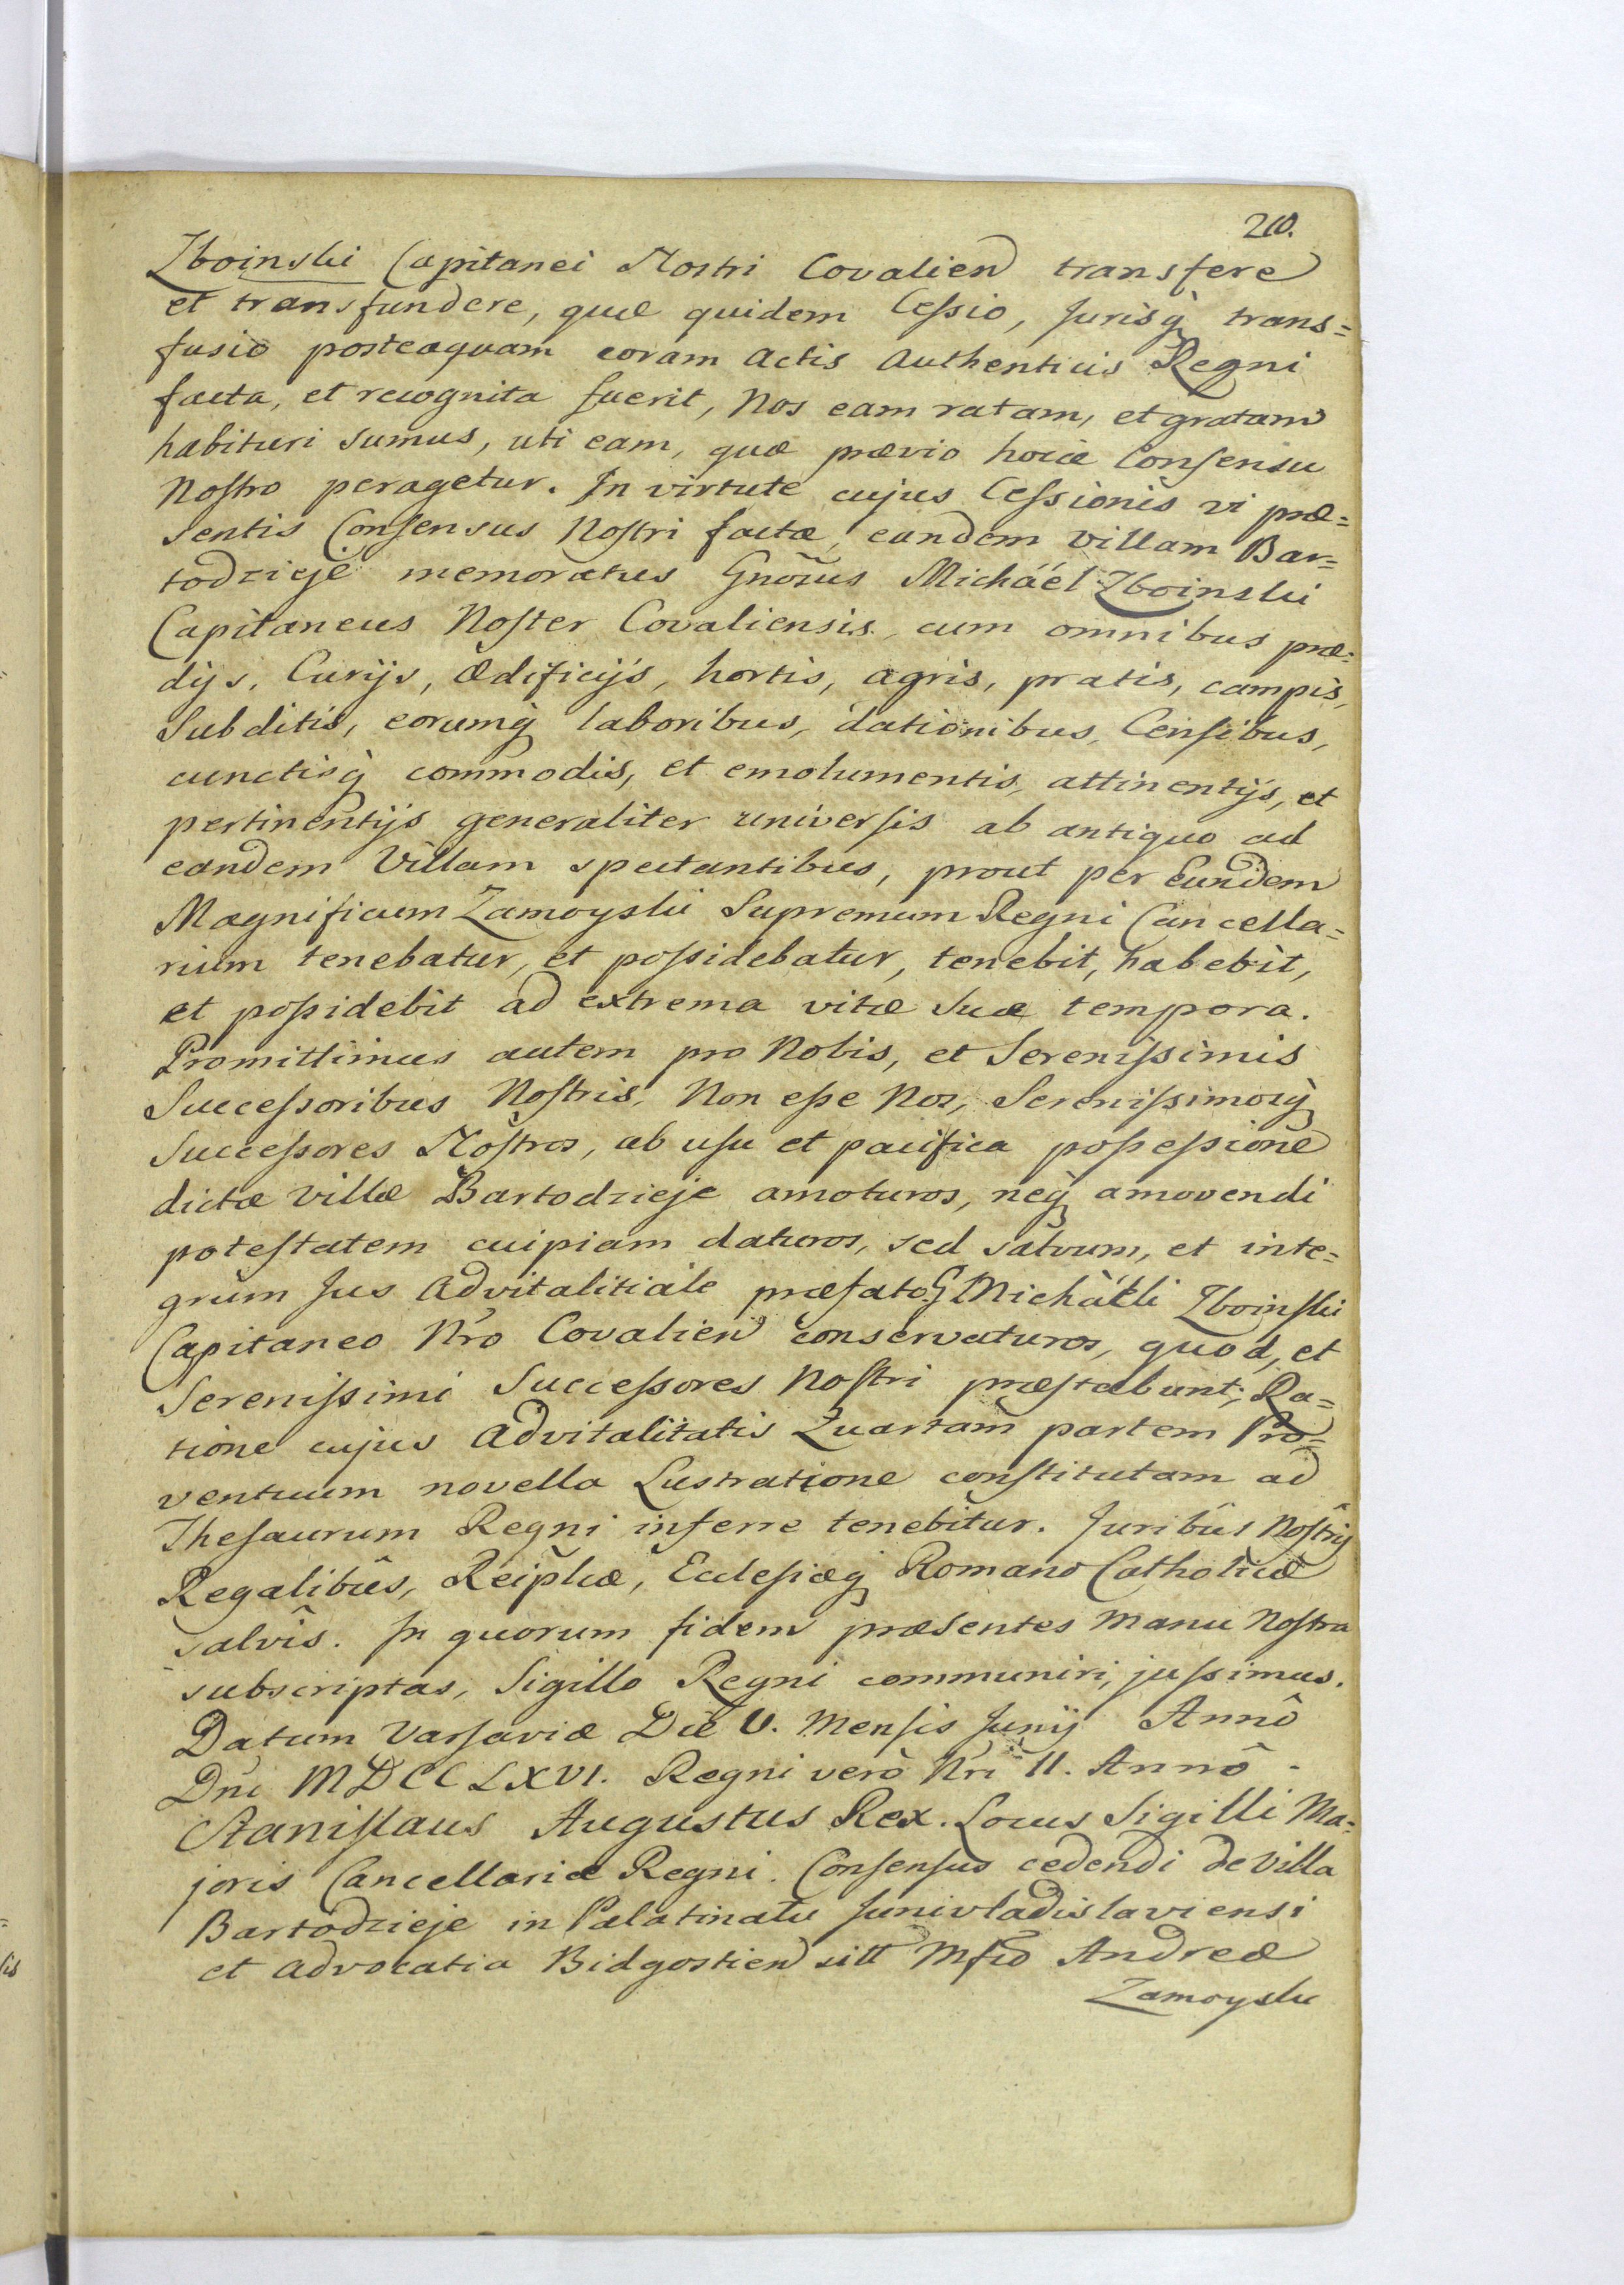 210.
Zboinski Capitanei Nostri Covalien transfere
et transfundere, quæ quidem Cessio, Jurisq̀ trans=
fusio posteaquam coram Actis Authenticis Regni
facta, et recognita fuerit, Nos eam ratam, et gratam
habituri sumus, uti eam, quæ prævio hocce Consensu
Nostro peragetur. In virtute cujus Cessionis vi præ=
sentis Consensus Nostri factæ, eandem Villam Bar=
todzieje memoratus Gnõsus Michäel Zboinski
Capitaneus Noster Covaliensis, cum omnibus præ=
dijs, Curijs, Ædificijs, hortis, agris, pratis, campis,
Subditis, eorumq̀ laboribus, dationibus, Censibus,
cunctisq̀ commodis, et emolumentis, attinentijs, et
pertinentijs generaliter universis ab antiquo ad
eandem Villam spectantibus, prout per Eundem
Magnificum Zamoyski Supremum Regni Cancella=
rium tenebatur, et possidebatur, tenebit, habebit,
et possidebit ad extrema vitæ suæ tempora.
Promittimus autem pro Nobis, et Serenissimis
Successoribus Nostris, Non esse Nos, Serenissimosq̀
Successores Nostros, ab usu et pacifica possessione
dictæ Villæ Bartodzieje amoturos, neq̀ amovendi
potestatem cuipiam daturos, sed salvum, et inte=
grum Jus Advitalitiale præfato G Michaëli Zboinski
Capitaneo Nr̃o Covalien conservaturos, quod, et
Serenissimi Successores Nostri præstabunt; Ra=
tione cujus Advitalitatis Quartam partem Pro=
ventuum novella Lustratione constitutam ad
Thesaurum Regni inferre tenebitur. Juribûs Nostrîs
Regalibûs, Reiplicæ, Ecclesiæq̀ Romano Catholicæ
salvîs. In quorum fidem præsentes Manu Nostra
subscriptas, Sigillo Regni communiri, jussimus.
Datum Varsaviæ Die V. Mensis Junij Annô
Dñi MDCCLXVI. Regni verò Nr̃i II. Annô.
Stanislaus Augustus Rex. Locus Sigilli Ma=
joris Cancellariæ Regni. Consensus cedendi de Villa
Bartodzieje in Palatinatu Junivladislaviensi
et Advocatia Bidgostien sitt Mfco Andreæ
Zamoyski